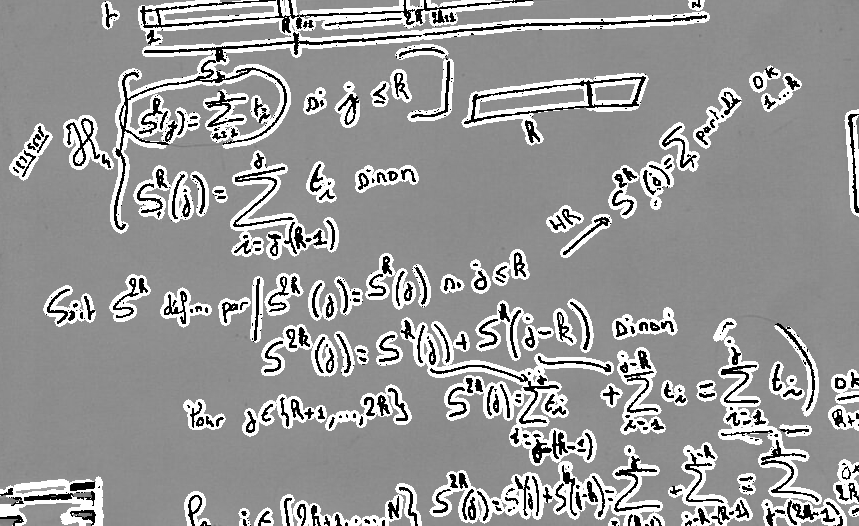 t
1 k k+1 2k 2k+1 N
S^k
H_k { S^k(j) = \sum_{i=1}^{j} t_i si j ≤ k ]
k
S^k(j) = \sum_{i=j-(k-1)}^{j} t_i sinon
HR → S^{2k}(j) = \sum OK 1...k
Soit S^{2k} défini par | S^{2k}(j) = S^k(j) si j ≤ k
S^{2k}(j) = S^k(j) + S^k(j-k) sinon
Pour j ∈ {k+1, ..., 2k} S^{2k}(j) = \sum_{i=j-(k-1)}^{j} t_i + \sum_{i=1}^{j-k} t_i = \sum_{i=1}^{j} t_i ) OK
j ∈ {2k+1, ..., N} S^{2k}(j) = S^k(j) + S^k(j-k) = \sum^{j} + \sum_{j-k-(k-1)}^{j-k} = \sum_{j-(2k-1)}^{j}